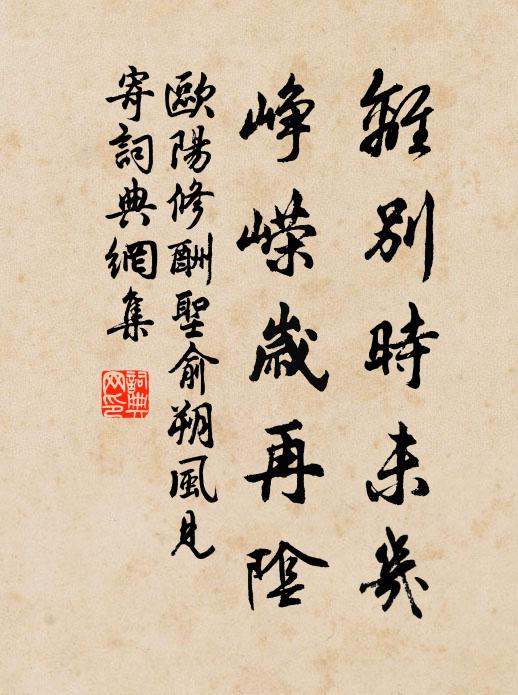 離別時未幾
崢嶸歲再陰
歐陽修酬聖俞朔風見
寄詞典網集
詞典網印